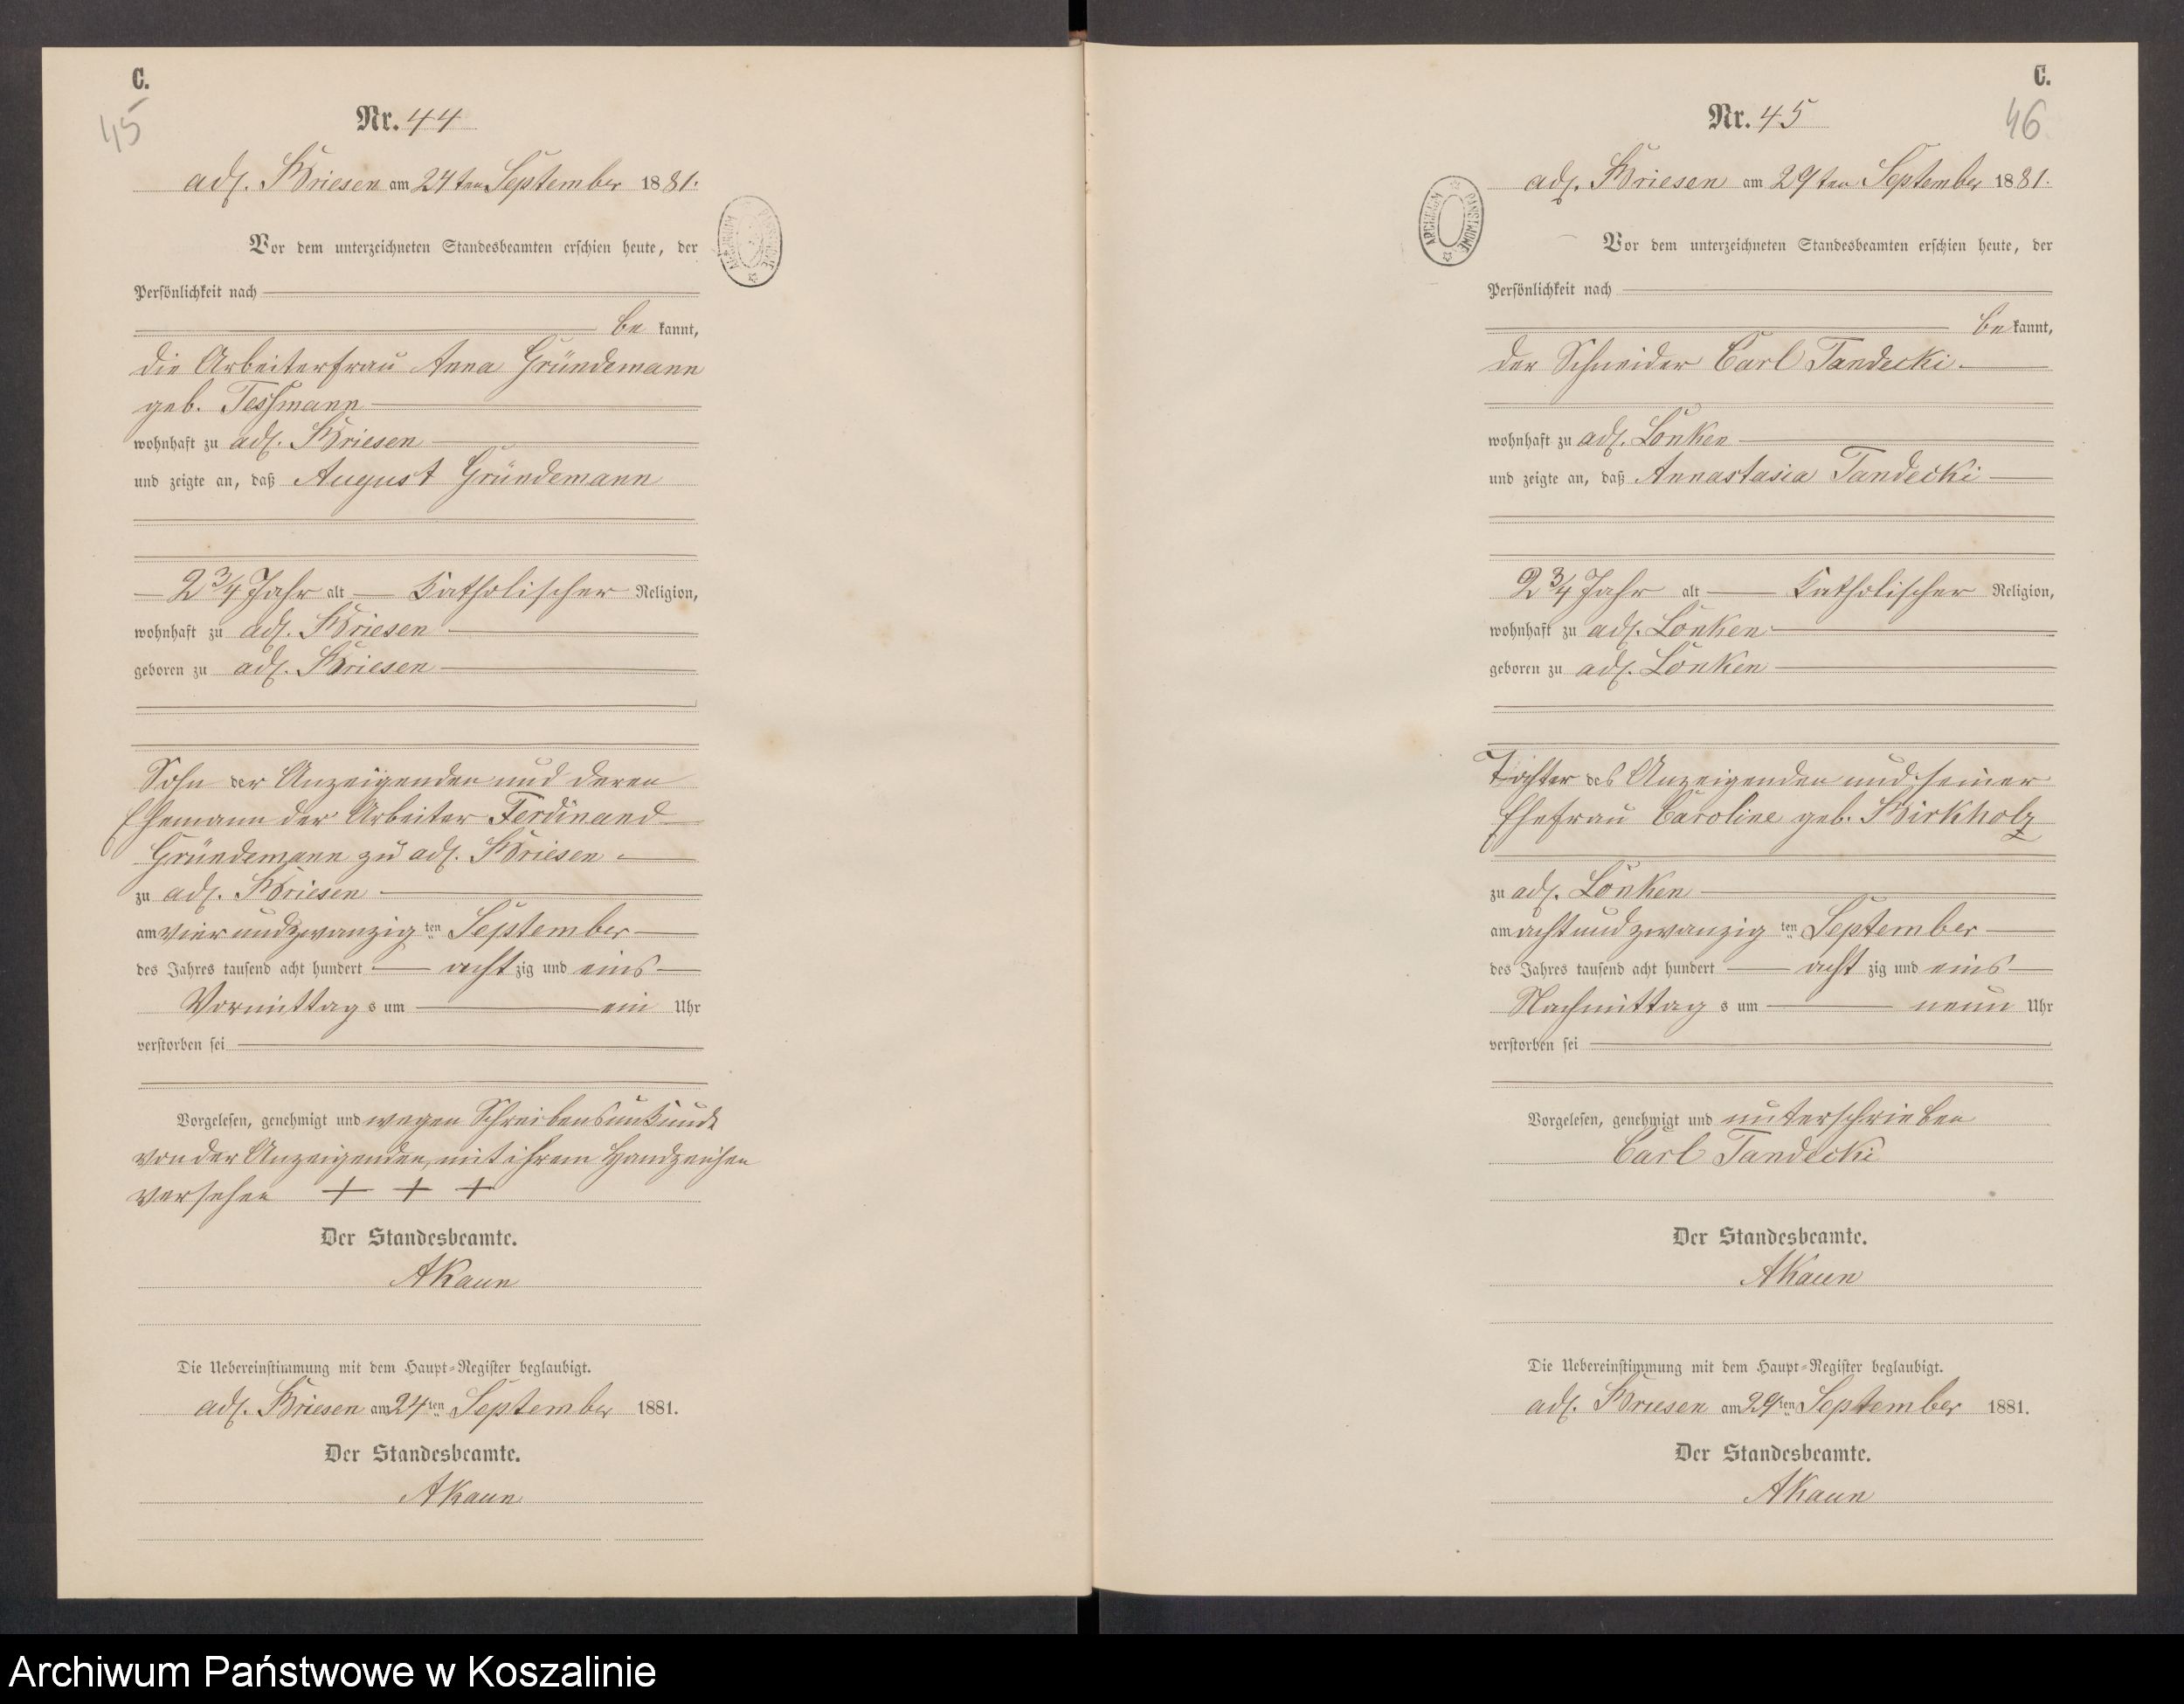 C.
45
Nr. 44
adl. Briesen am 24ten September 1881.
Vor dem unterzeichneten Standesbeamten erschien heute, der
Persönlichkeit nach
be kannt,
die Arbeiterfrau Anna Gründemann
geb. Tessmann
wohnhaft zu adl. Briesen
und zeigte an, daß August Gründemann
2 3/4 Jahr alt Katholischer Religion,
wohnhaft zu adl. Briesen
geboren zu adl. Briesen
Sohn der Anzeigenden und deren
Ehemann der Arbeiter Ferdinand
Gründemann zu adl. Briesen
zu adl. Briesen
am vierundzwanzig ten September
des Jahres tausend acht hundert acht zig und eins
Vormittag s um ein Uhr
verstorben sei
Vorgelesen, genehmigt und wegen Schreibensunkunde
von der Anzeigenden, mit ihrem Handzeichen
versehen + + +
Der Standesbeamte.
AKaun
Die Uebereinstimmung mit dem Haupt-Register beglaubigt.
adl. Briesen am 24ten September 1881.
Der Standesbeamte.
AKaun
ARCHIWUM PAŃSTWOWE
C.
46
Nr. 45
adl. Briesen am 29ten September 1881.
Vor dem unterzeichneten Standesbeamten erschien heute, der
Persönlichkeit nach
be kannt,
der Schneider Carl Tandecki
wohnhaft zu adl. Lonken
und zeigte an, daß Annastasia Tandecki
2 3/4 Jahr alt Katholischer Religion,
wohnhaft zu adl. Lonken
geboren zu adl. Lonken
Tochter des Anzeigenden und seiner
Ehefrau Caroline geb. Birkholz
zu adl. Lonken
am achtundzwanzig ten September
des Jahres tausend acht hundert acht zig und eins
Nachmittag s um neun Uhr
verstorben sei
Vorgelesen, genehmigt und unterschrieben
Carl Tandecki
Der Standesbeamte.
AKaun
Die Uebereinstimmung mit dem Haupt-Register beglaubigt.
adl. Briesen am 29ten September 1881.
Der Standesbeamte.
AKaun
ARCHIWUM PAŃSTWOWE
Archiwum Państwowe w Koszalinie